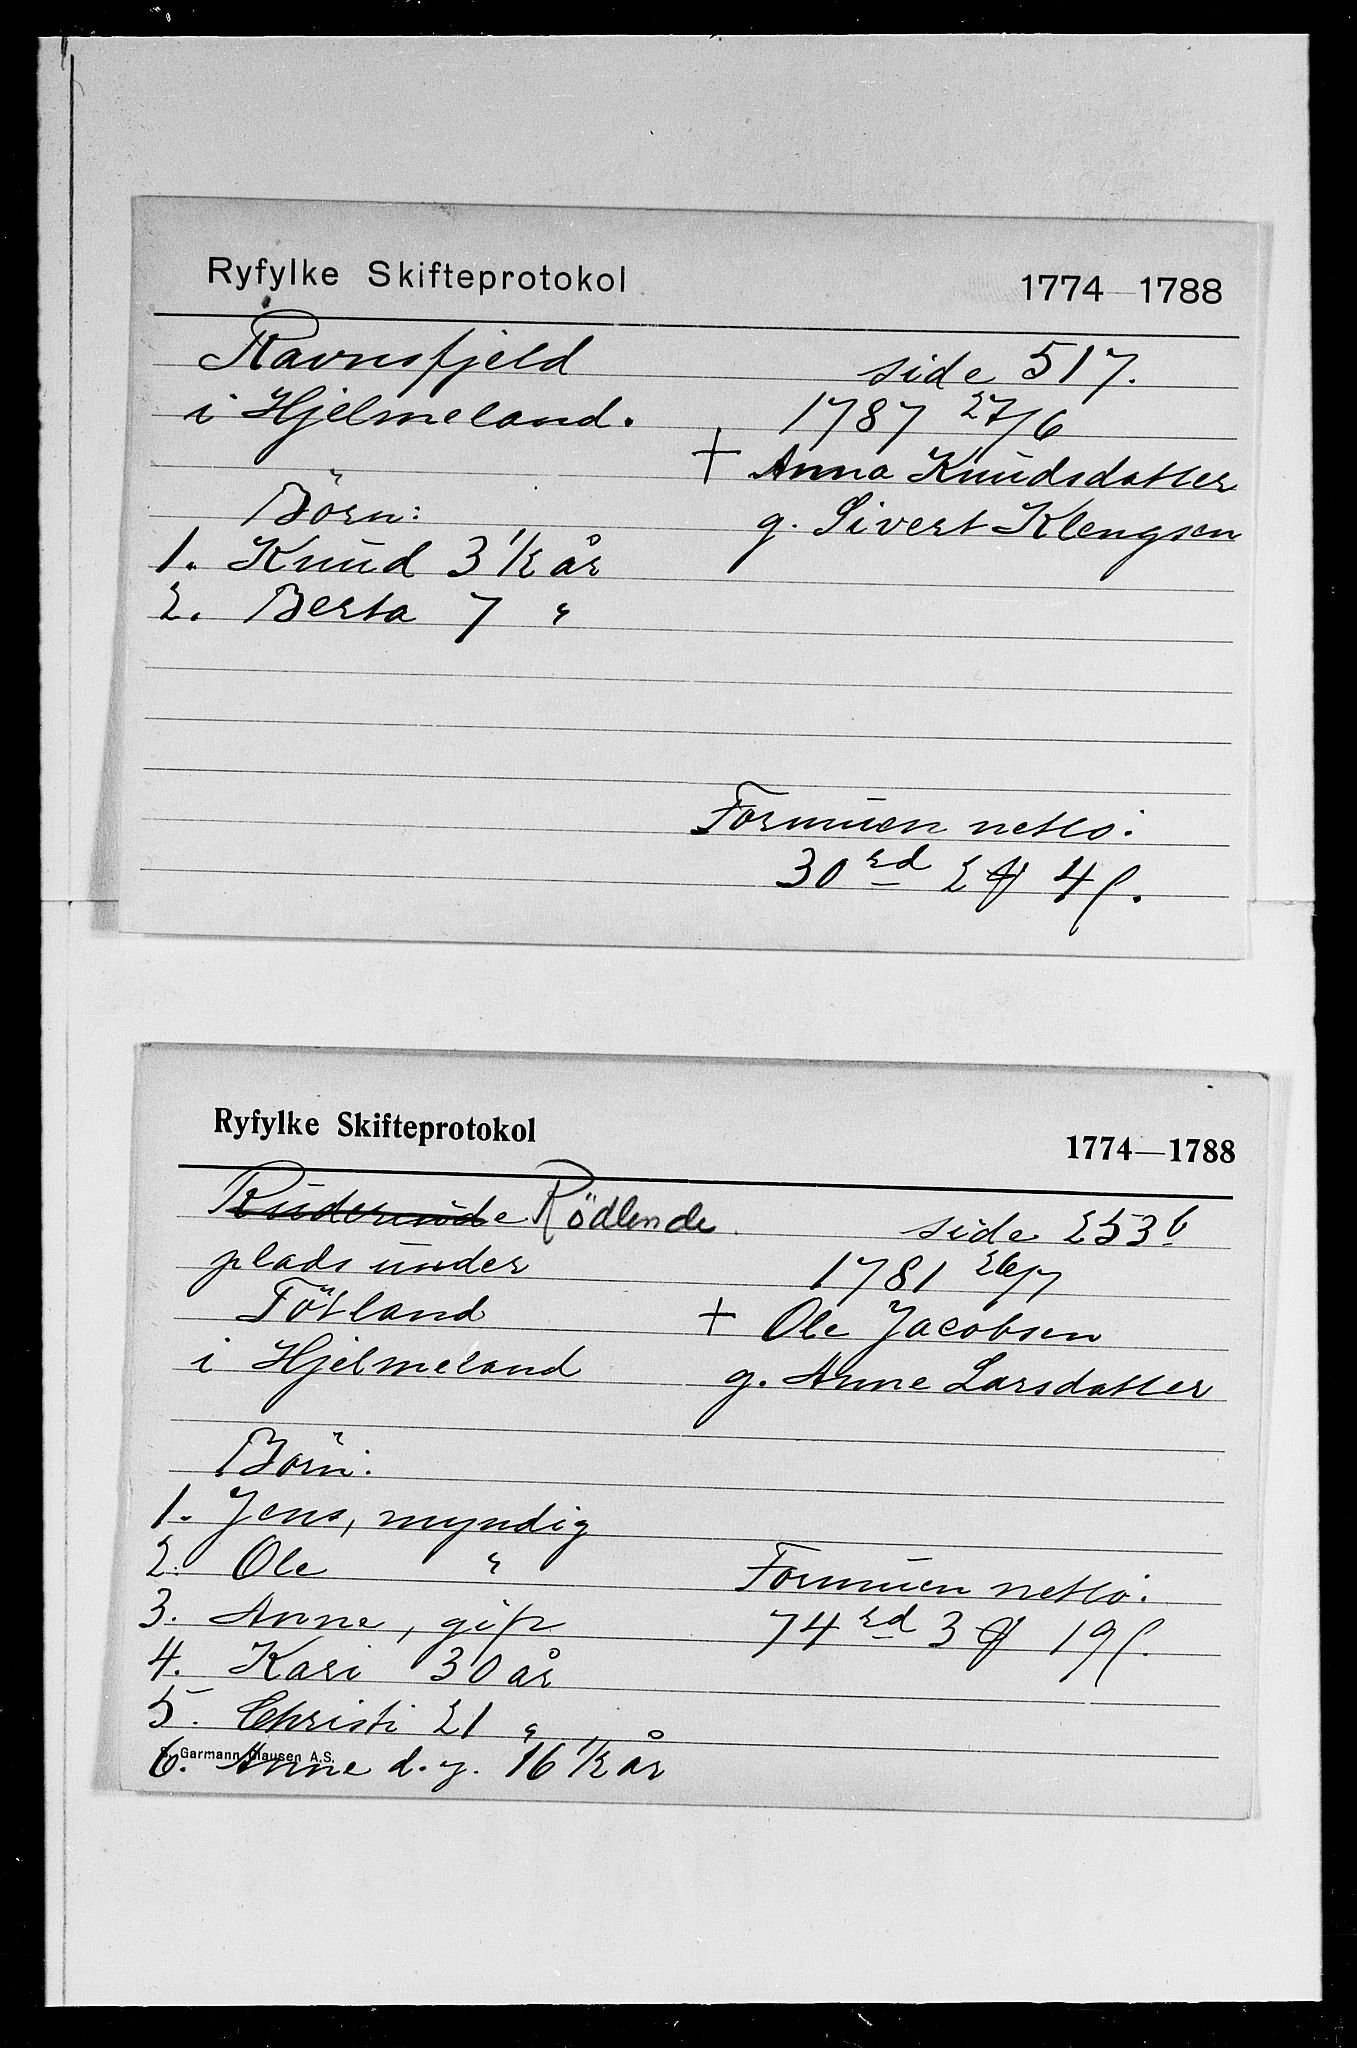 Ryfylke Skifteprotokol 1774-1788
Ravnsfjeld side 517.
i Hjelmeland. 1787 27/6
+ Anna Knudsdatter
Börn: g. Sivert Klengsen
1. Knud 3 1/2 år
2. Berta 7 "
Formuen netto:
30 rd 2 ₰ 4 ſ.
Ryfylke Skifteprotokol 1774—1788
Rödlende side 253 b
plads under 1781 26/7
Tötland + Ole Jacobsen
i Hjelmeland g. Anne Larsdatter
Börn:
1. Jens, myndig
2. Ole " Formuen netto:
3. Anne, gift 74 rd 3 ₰ 19 ſ.
4. Kari 30 år
5. Christi 21 "
6. Anne d. y. 16 1/2 år
Garmann Clausen A.S.